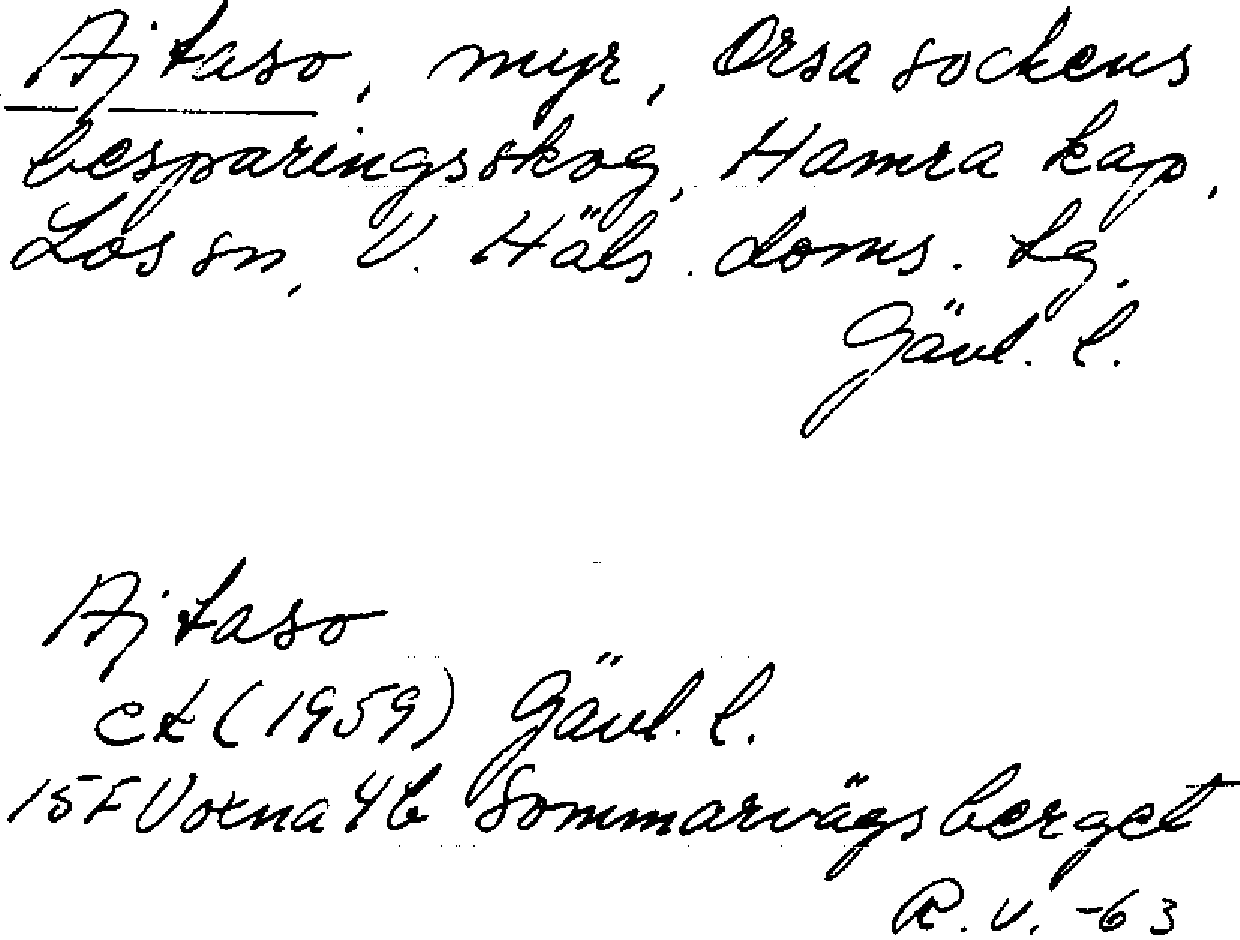 Ajtaso, myr, Orsa sockens
besparingsskog, Hamra kap,
Los sn, V. Häls. doms. tg.
Gävl. l.
Ajtaso
ek (1959) Gävl. l.
15F Voxna 4b Sommarvägsberget
R.V. -63